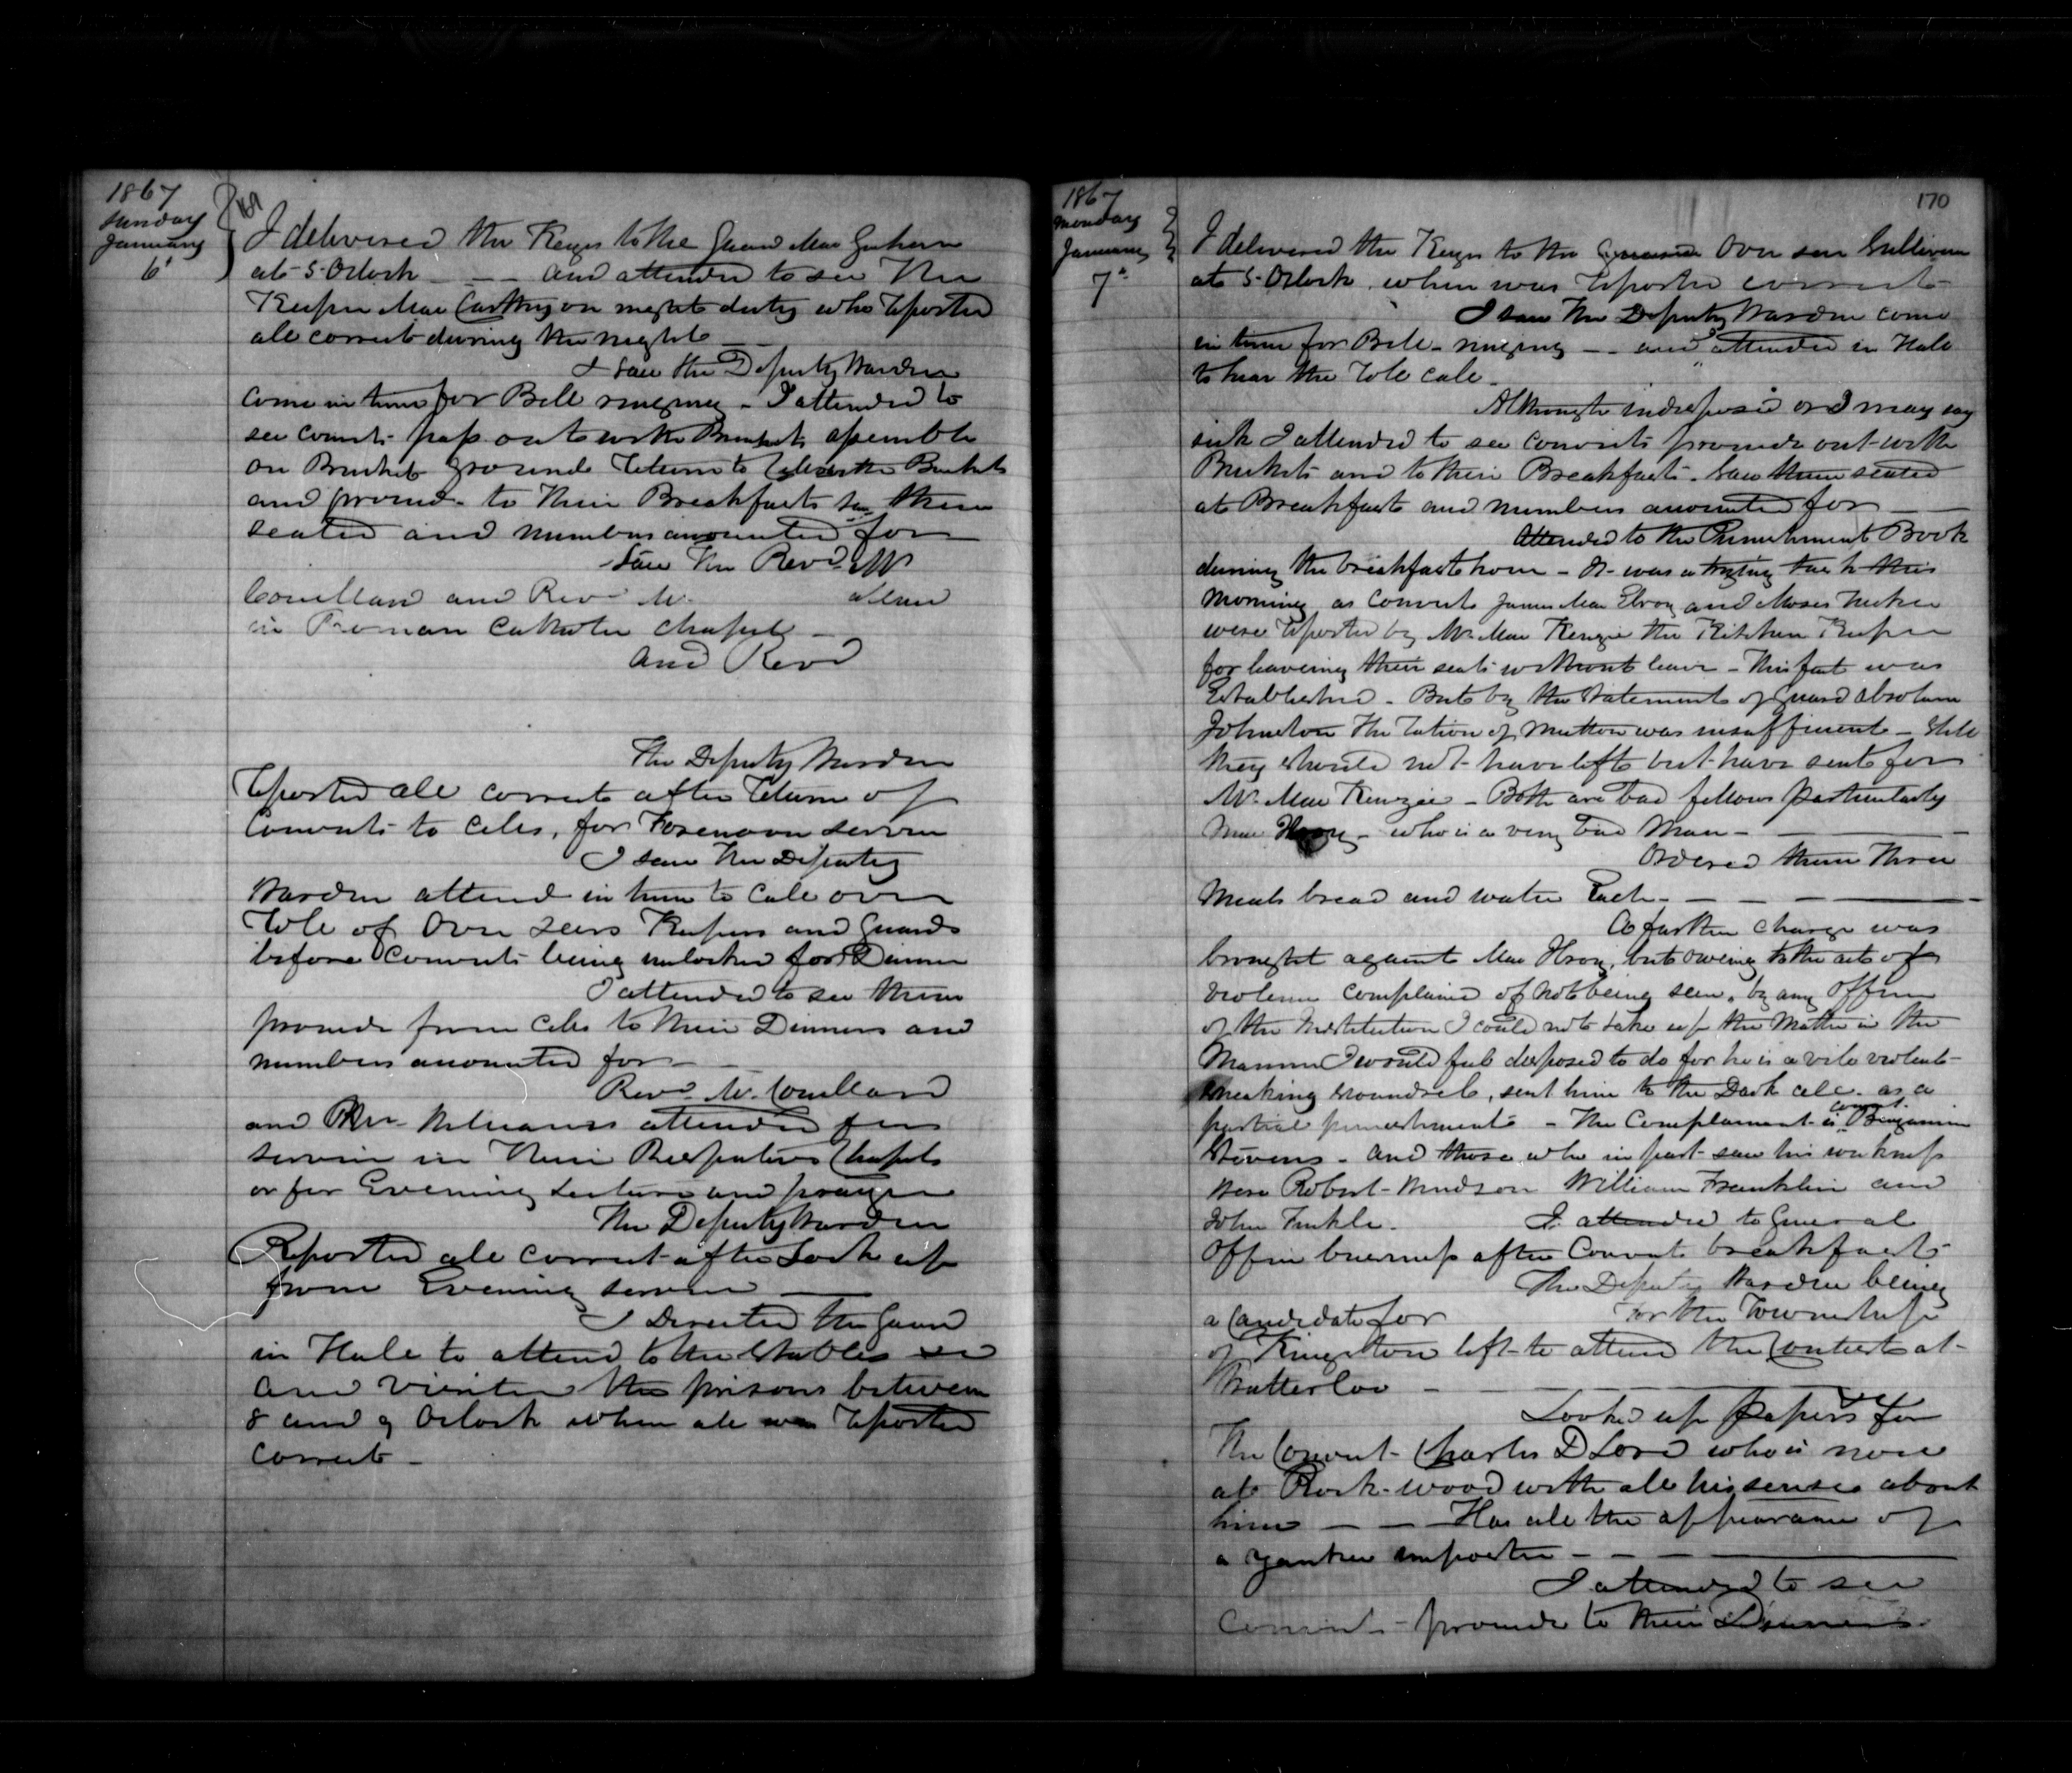 1867
Sunday
January
6'
169
I delivered the Keys to the Guard Mac
at 5 Oclock - - - and attended to see the
Keeper Mac Carthy on night duty who reported
all correct during the night -
I saw the Deputy Warden
come in time for Bell ringing - I attended to
see convicts pass out with Buckets assemble
on Bucket ground return to the Buckets
and proceed - to their Breakfasts saw them
seated and numbers accounted for
Saw the Revd. Mr
and Revd Mr. attend
in Roman Catholic Chapel -
and Revd
The Deputy Warden
reported all correct after return of
Convicts to cells, for Forenoon service
I saw the Deputy
Warden attend in time to call over
role of Over seers Keepers and Guards
before Convicts being unlocked for Dinner
I attended to see them
proceed from cells to their Dinners and
numbers accounted for -
Revd. Mr.
and attended for
service in their Respective Chapels
or for Evening Lecture and prayer
The Deputy Warden
Reported all correct after Lock up
from Evening service
I Directed the Guard
in Hall to attend to the Stables
and visited the prisons between
8 and 9 Oclock when all was reported
correct -
1867
Monday
January
7"
170
I delivered the Keys to the Over seer Sullivan
at 5 Oclock. when was reported correct -
I saw the Deputy Warden come
in time for Bell - ringing - - and attended in Hall
to hear the role call -
Although indisposed or I may say
sick I attended to see convicts proceed out with
Buckets and to their Breakfasts - Saw them seated
at Breakfast and numbers accounted for - -
Attended to the Punishment Book
during the breakfast hour - It was a trying task this
morning as convicts James Mac Elroy and Moses
were reported by Mr. Mac Kenzie the Kitchen Keeper
for leaving their seats without leave - This fact was
Established - But by the statement of Guard Absolum
Johnston the ration of Mutton was insufficient - Still
they should not have left but have sent for
Mr. Mac Kenzie - Both are bad fellows particularly
Mac Elroy - who is a very bad Man -
Ordered them three
Meals bread and water Each - - - -
A further charge was
brought against Mac Elroy, but owing to the acts of
violence complained of not being seen, by any Officer
of the Institution I could not take up the Matter in the
Manner I would feel disposed to do for he is a vile violent -
sneaking scoundrel, sent him to the Dark cell - as a
partial punishment - The Complainant is convt. Benjamin
Stevens - and those who in part saw his
were Robert Hudson William Franklin and
John Finkle. I attended to General
Office business after Convicts breakfast -
The Deputy Warden being
a Candidate for For the Township
of Kingston left to attend the Contest at -
Watterloo - - -
Looked up papers for
the Convict - Charles D Lord who is now
at Rock-wood with all his senses about
him - - - Has all the appearance of
a Yankee imposter - - -
I attended to see
Convicts - proceed to their Dinners -